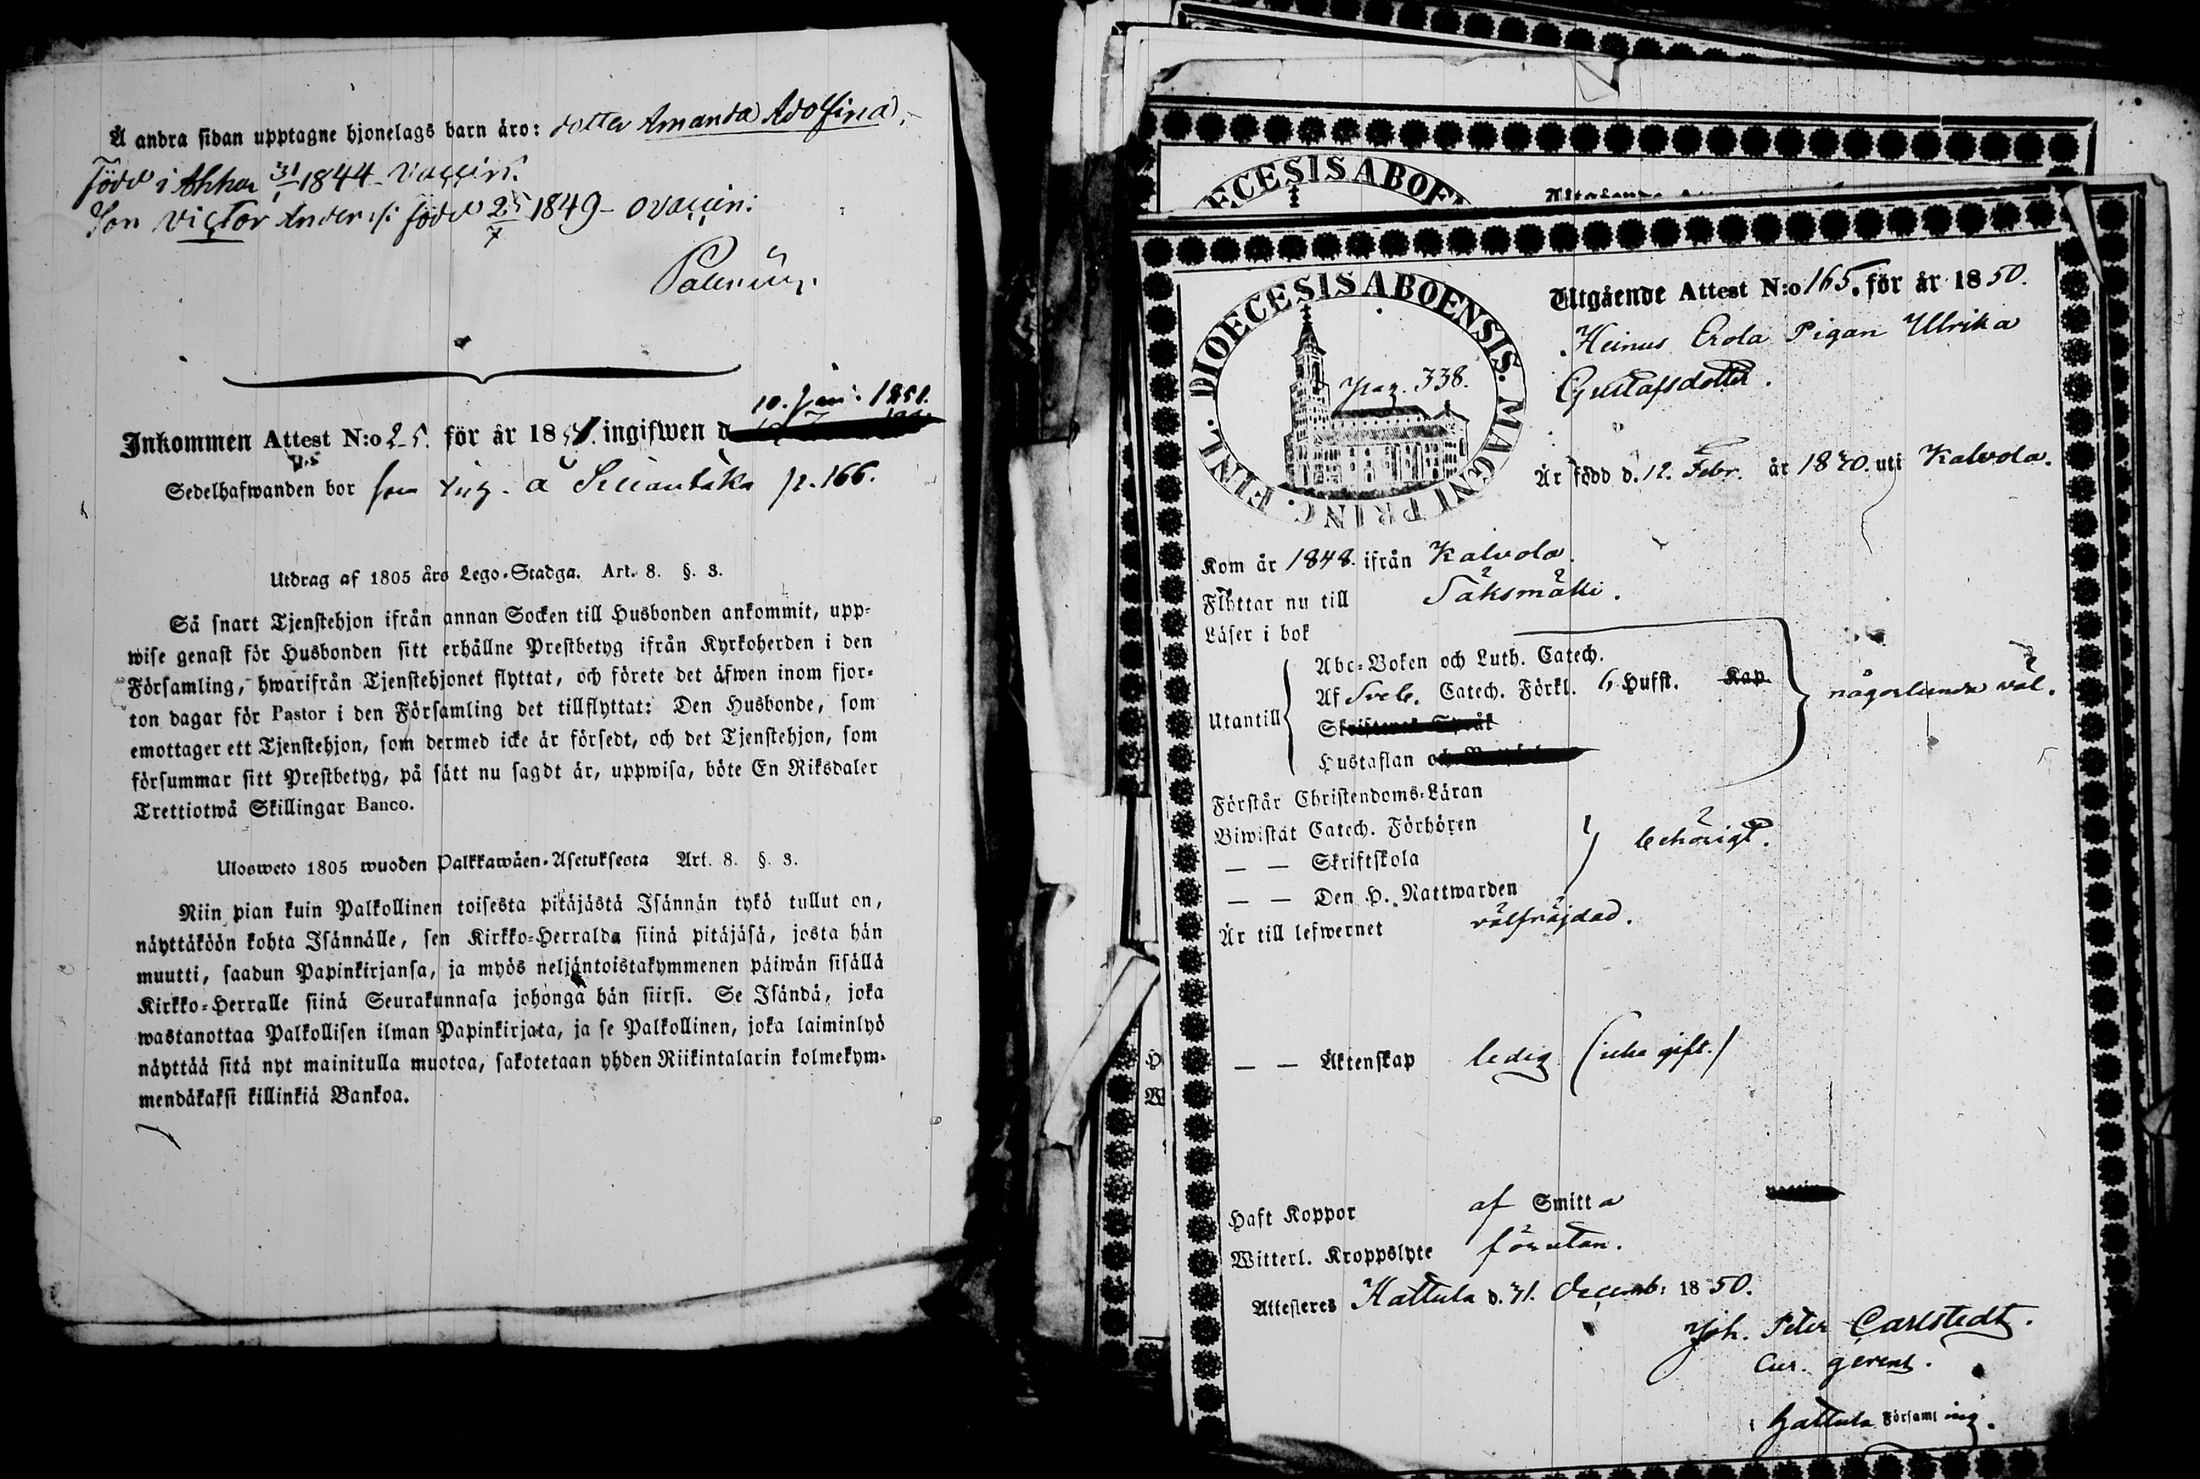 Å andra sidan upptagne hjonelags barn äro: dotter Amanda Adolfina,
Född i Akkas 31/1 1844 - vaccin:
Son Victor Anders född 25/7 1849 - ovaccin:
10. Juni 1851.
Inkommen Attest N:o 25. för år 1851. ingifwen d
Sedelhafwanden bor som å p. 166.
Utdrag af 1805 års Lego-Stadga. Art. 8. §. 3.
Så snart Tjenstehjon ifrån annan Socken till Husbonden ankommit, upp-
wise genast för Husbonden sitt erhållne Prestbetyg ifrån Kyrkoherden i den
Församling, hwarifrån Tjenstehjonet flyttat, och förete det äfwen inom fjor-
ton dagar för Pastor i den Församling det tillflyttat: Den Husbonde, som
emottager ett Tjenstehjon, som dermed icke är försedt, och det Tjenstehjon, som
försummar sitt Prestbetyg, på sätt nu sagdt är, uppwisa, böte En Riksdaler
Trettiotwå Skillingar Banco.
Ulosweto 1805 wuoden Palkkawäen-Asetuksesta Art. 8. §. 3.
Niin pian kuin Palkollinen toisesta pitäjästä Isännän tykö tullut on,
näyttäköön kohta Isännälle, sen Kirkko-Herralda siinä pitäjäsä, josta hän
muutti, saadun Papinkirjansa, ja myös neljäntoistakymmenen päiwän sisällä
Kirkko-Herralle siinä Seurakunnasa johonga hän siirsi. Se Isändä, joka
wastanottaa Palkollisen ilman Papinkirjata, ja se Palkollinen, joka laiminlyö
näyttää sitä nyt mainitulla muotoa, sakotetaan yhden Riikintalarin kolmekym-
mendäkaksi killinkiä Bankoa.
DIOECESIS ABOENSIS. MAGNI PRINC. FINL.
pag. 338.
Utgående Attest N:o 165. för år 1850.
Heinus Erola Pigan Ulrika
Gustafsdotter.
Är född d. 12. Febr. år 1830. uti Kalvola.
Kom år 1848. ifrån Kalvola.
Flyttar nu till Sääksmäki.
Läser i bok
Utantill
Abc-Boken och Luth. Catech.
Af Sveb. Catech. Förkl. 6 Hufst. Kap.
Skriftenes Språk
Hustaflan och
någorlunda väl.
Förstår Christendoms-Läran
Biwistat Catech. Förhören
— — Skriftskola
behörigt.
— — Den H. Nattwarden
Är till lefwernet välfräjdad.
— — Äktenskap ledig (icke gift.)
Haft Koppor af Smitta
Witterl. Kroppslyte förutan.
Attesteres Hattula d. 31. Decemb: 1850.
Joh. Peter Carlstedt.
Cur. gerens.
i Hattula Församling.